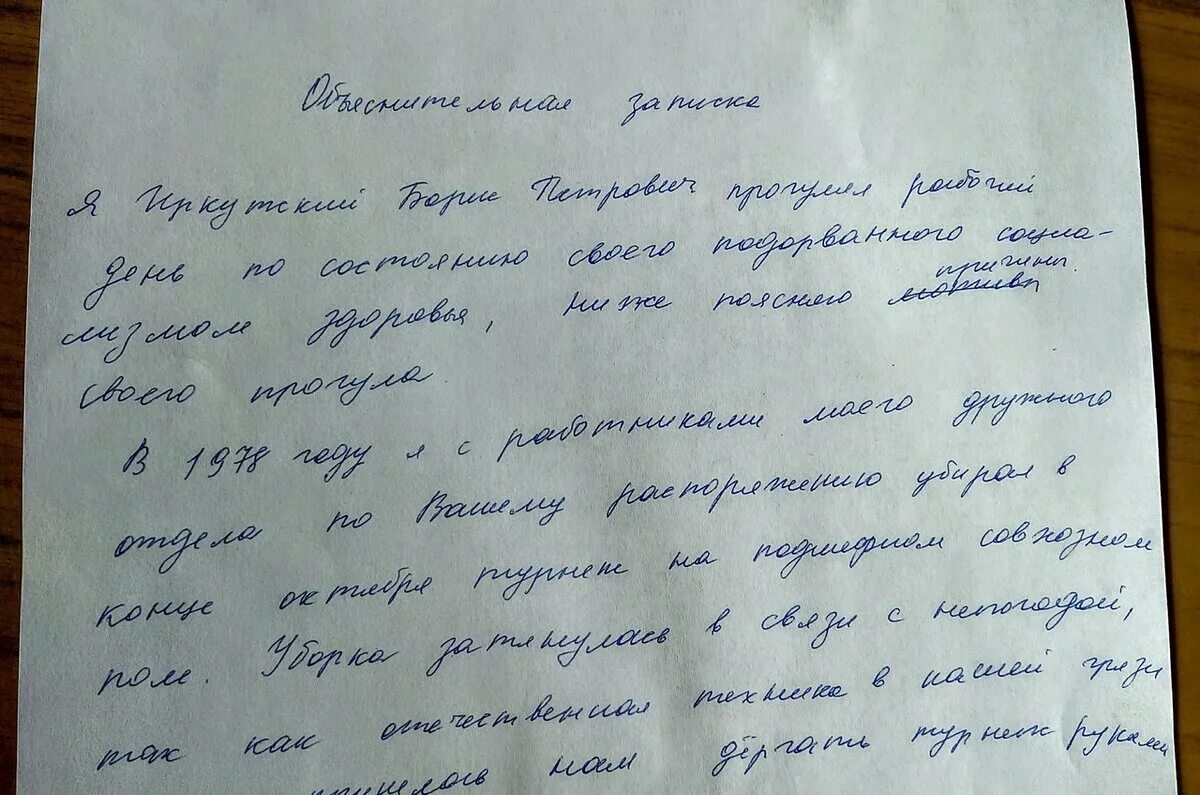 Объяснительная записка
Я Иркутский Борис Петрович прогулял рабочий
день по состоянию своего подорванного социа-
причины
лизмом здоровья, ниже поясняю мотивы
своего прогула.
В 1978 году я с работниками моего дружного
отдела по Вашему распоряжению убирал в
конце октября турнеж на подшефном совхозном
поле. Уборка затянулась в связи с непогодой,
так как отечественная техника в нашей грязи
пришлось нам дёргать турнеж руками